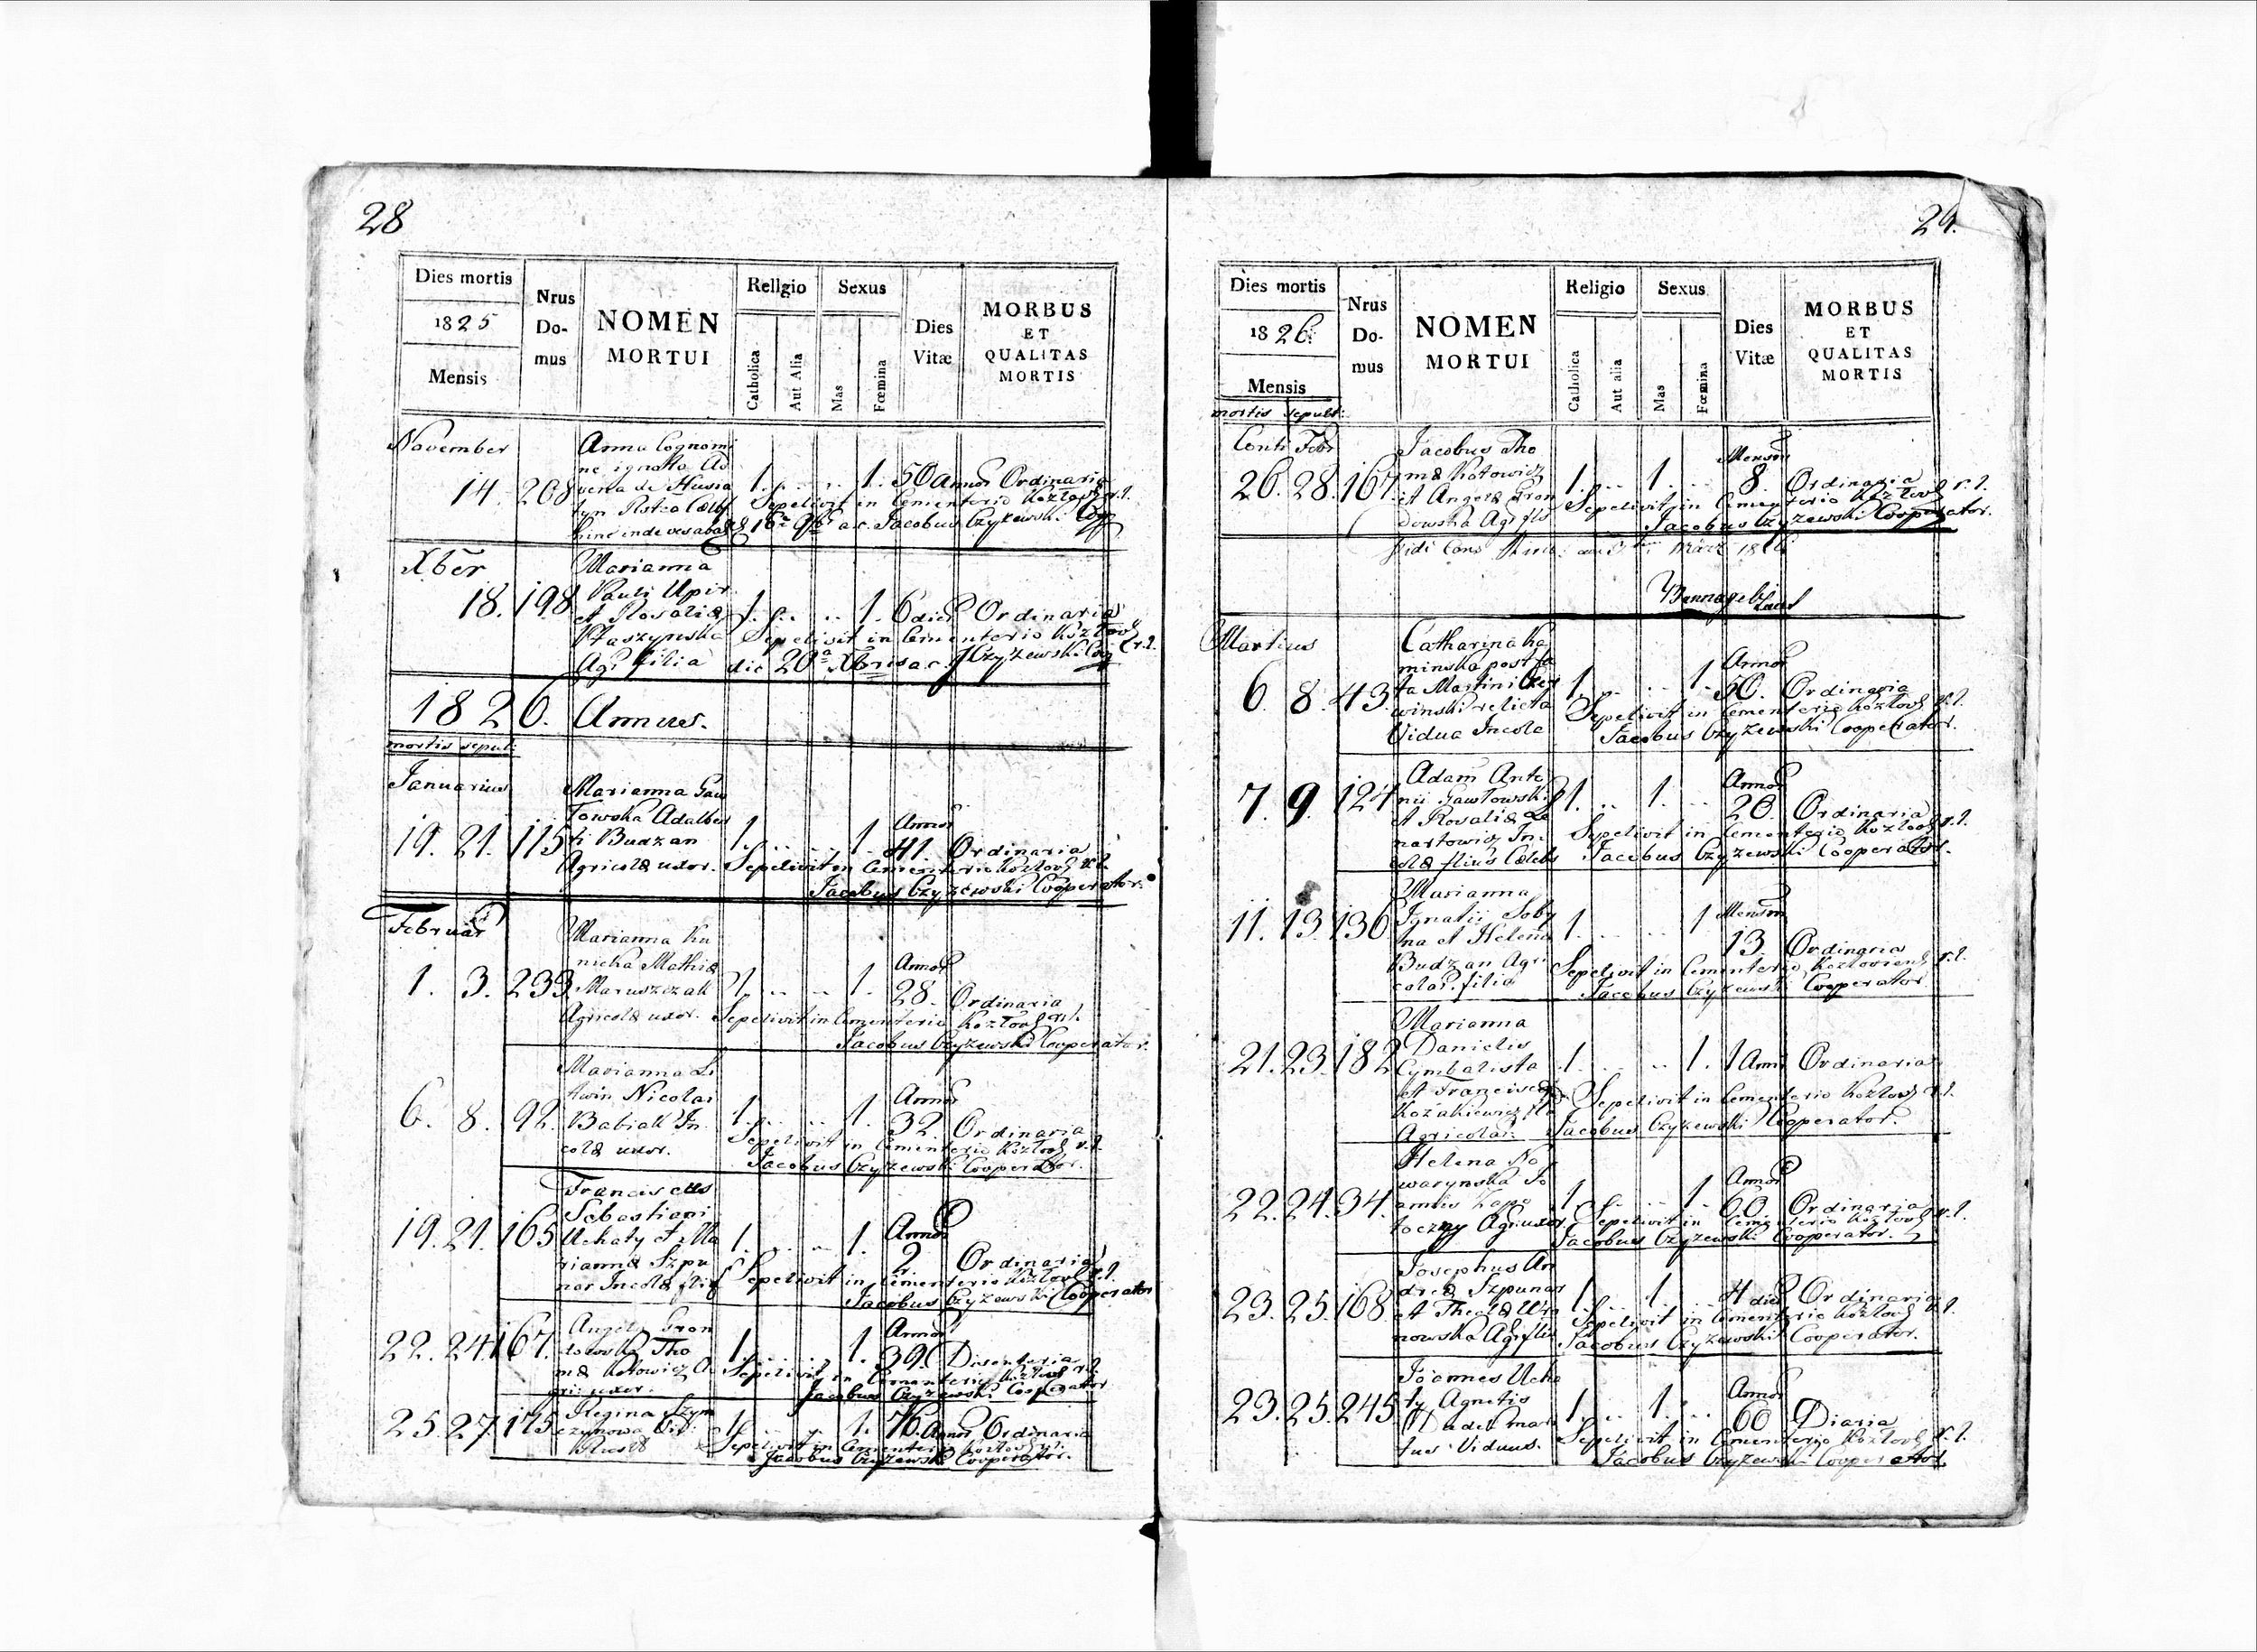 28
Dies mortis
1825
Mensis
Nrus
Do-
mus
NOMEN
MORTUI
Religio
Catholica
Aut Alia
Sexus
Mas
Fœmina
Dies
Vitæ
MORBUS
ET
QUALITAS
MORTIS
November
14. 208
Anna Cognomi
ne ignota Ad
vena de Husia
tyn
1. 1. 50 Annor Ordinaria
Sepelivit in Cementerio Kozłov r.l.
Jacobus Czyżewski Coop
Xber
18. 198
Marianna
Pauli Upir
et Rosaliæ
Ptaszynska
Agr filia
1. 1. 6 dier Ordinaria
Sepelivit in Cementerio Kozłov r.l.
die 20a Xbris a.c. J Czyżewski Coop
1826. Annus.
mortis sepult:
Januarius
19. 21. 115
Marianna Gaw
łowska Adalber
ti Budzan
Agricolæ uxor.
1. 1. Annor
41. Ordinaria
Sepelivit in Cementerio Kozłov r.l.
Jacobus Czyżewski Cooperator.
Februar
1. 3. 233
Marianna Ku
nicka Mathiæ
Maruszczak
Agricolæ uxor.
1. 1. Annor
28. Ordinaria
Sepelivit in Cementerio Kozłov r.l.
Jacobus Czyżewski Cooperator.
6. 8. 92.
Marianna Li
twin Nicolai
Babiak In
colæ uxor.
1. 1. Annor
32. Ordinaria
Sepelivit in Cementerio Kozłov r.l.
Jacobus Czyżewski Cooperator.
19. 21. 165
Franciscus
Sebastiani
Uchaty et Ma
riannæ Szpu
nar Incolæ flius
1. 1. Annor
2. Ordinaria
Sepelivit in Cementerio Kozłov r.l.
Jacobus Czyżewski Cooperator
22. 24. 167.
Angela Gron
dowska Tho
mæ Kotowicz A
gri: uxor.
1. 1. Annor
39. Disenteria
Sepelivit in Cementerio Kozłov r.l.
Jacobus Czyżewski Cooperator
25. 27. 175
Regina Szym
czynowa
1. 1. 76. Annor Ordinaria
Sepelivit in Cementerio Kozłov r.l.
Jacobus Czyżewski Cooperator.
29.
Dies mortis
1826.
Mensis
mortis sepult:
Nrus
Do-
mus
NOMEN
MORTUI
Religio
Catholica
Aut alia
Sexus
Mas
Fœmina
Dies
Vitæ
MORBUS
ET
QUALITAS
MORTIS
Conti Febr
26. 28. 167.
Jacobus Tho
mæ Kotowicz
et Angelæ Gron
dowska Agr fls
1. 1. Mensor
8. Ordinaria
Sepelivit in Cementerio Kozłov r.l.
Jacobus Czyżewski Cooperator.
März 1826
Martius
6. 8. 43.
Catharina Ka
minska post fa
ta Martini
winski relicta
Vidua Incola
1. 1. Annor
50. Ordinaria
Sepelivit in Cementerio Kozłov r.l.
Jacobus Czyżewski Cooperator.
7. 9. 124
Adam Anto
nii Gawłowski
et Rosaliæ Le
nartowicz In
colæ flius Cælebs
1. 1. Annor
20. Ordinaria
Sepelivit in Cementerio Kozłov r.l.
Jacobus Czyżewski Cooperator.
11. 13. 136
Marianna
Ignatii Soby
tna et Helena
Budzan Agri
colar. filia
1. 1 Mensor
13. Ordinaria
Sepelivit in Cementerio Kozłoviens r.l.
Jacobus Czyżewski Cooperator
21. 23. 182
Marianna
Danielis
Cymbalista
et Franciscæ
Kozakiewicz fla
Agricolar.
1. 1. 1 Anni Ordinaria
Sepelivit in Cementerio Kozłov r.l.
Jacobus Czyżewski Cooperator.
22. 24. 34.
Helena No
warynska Jo
annis Kapo
toczny Agr uxor
1. 1 Annor
60. Ordinaria
Sepelivit in Cementerio Kozłov r.l.
Jacobus Czyżewski Cooperator.
23. 25. 168
Josephus An
dreæ Szpunar
et Theclæ Wro
nowska Agr fls
1. 1. 4 dier Ordinaria
Sepelivit in Cementerio Kozłov r.l.
Jacobus Czyżewski Cooperator.
23. 25. 245
Joannes Ucha
ty Agnetis
Dudek mari
tus Viduus.
1. 1. Annor
60 Diaria
Sepelivit in Cementerio Kozłov r.l.
Jacobus Czyżewski Cooperator.